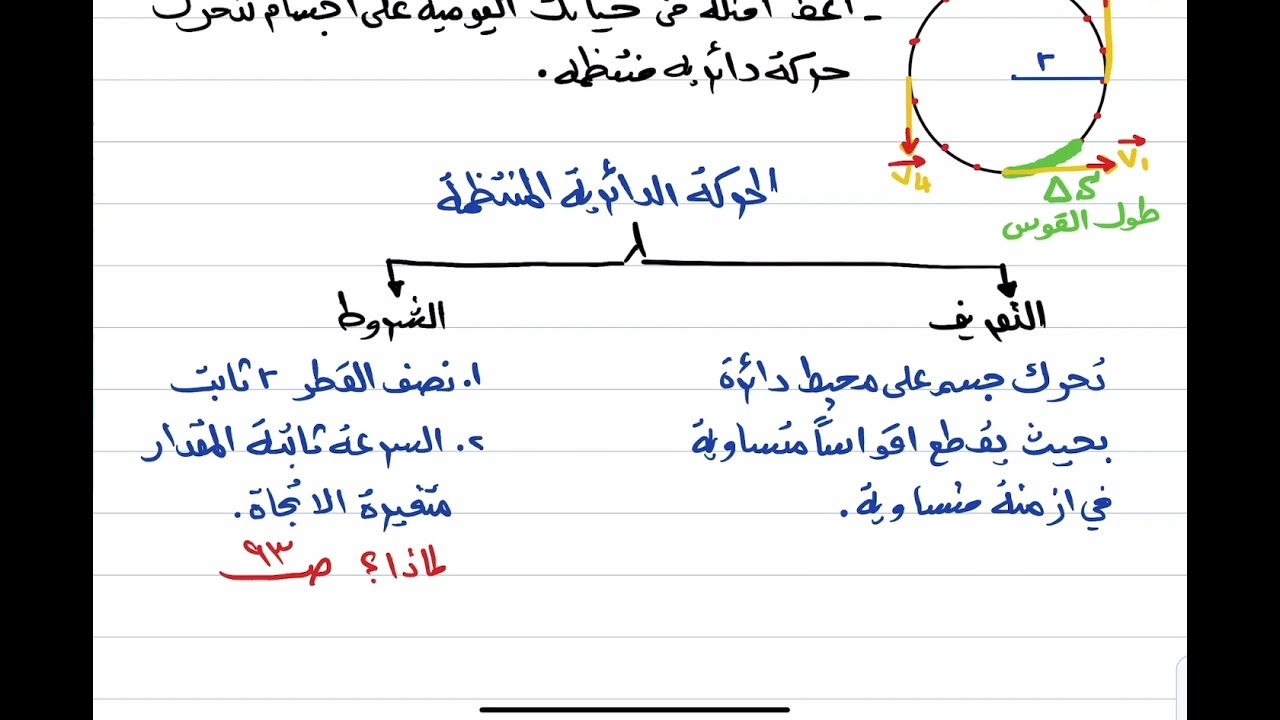 - أعط أمثلة من حياتك اليومية على أجسام تتحرك
حركة دائرية منتظمة.
r
V₁
V₄
ΔS
طول القوس
الحركة الدائرية المنتظمة
التعريف
تحرك جسم على محيط دائرة
بحيث يقطع اقواساً متساوية
في ازمنة متساوية.
الشروط
١. نصف القطر r ثابت
٢. السرعة ثابتة المقدار
متغيرة الاتجاة.
لماذا؟ ص ٩٣